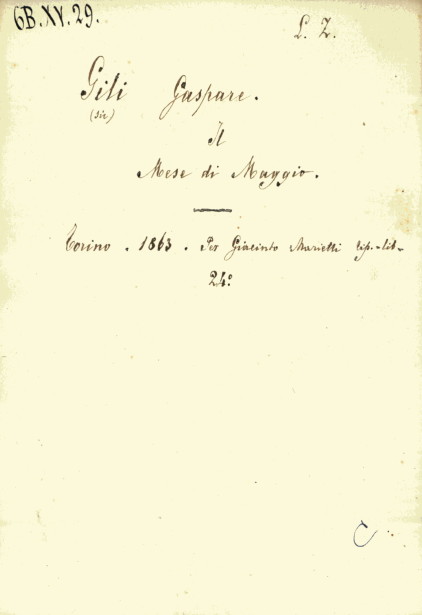 6B.XV.29.
L. Z.
Gili Gaspare.
(sic)
Il
Mese di Maggio.
Torino . 1863 . Per Giacinto Marietti tip.-lib-
24°
C